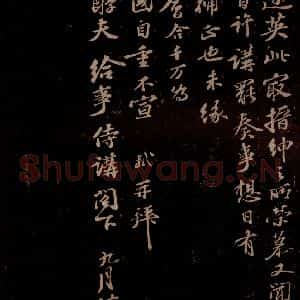 迩英此最搢紳之所榮慕又聞
旨許講罷奏事想日有
補正也未緣
合千万為
國自重不宣 軾再拜
醇夫給事侍講閣下 九月
Shufawang.CN